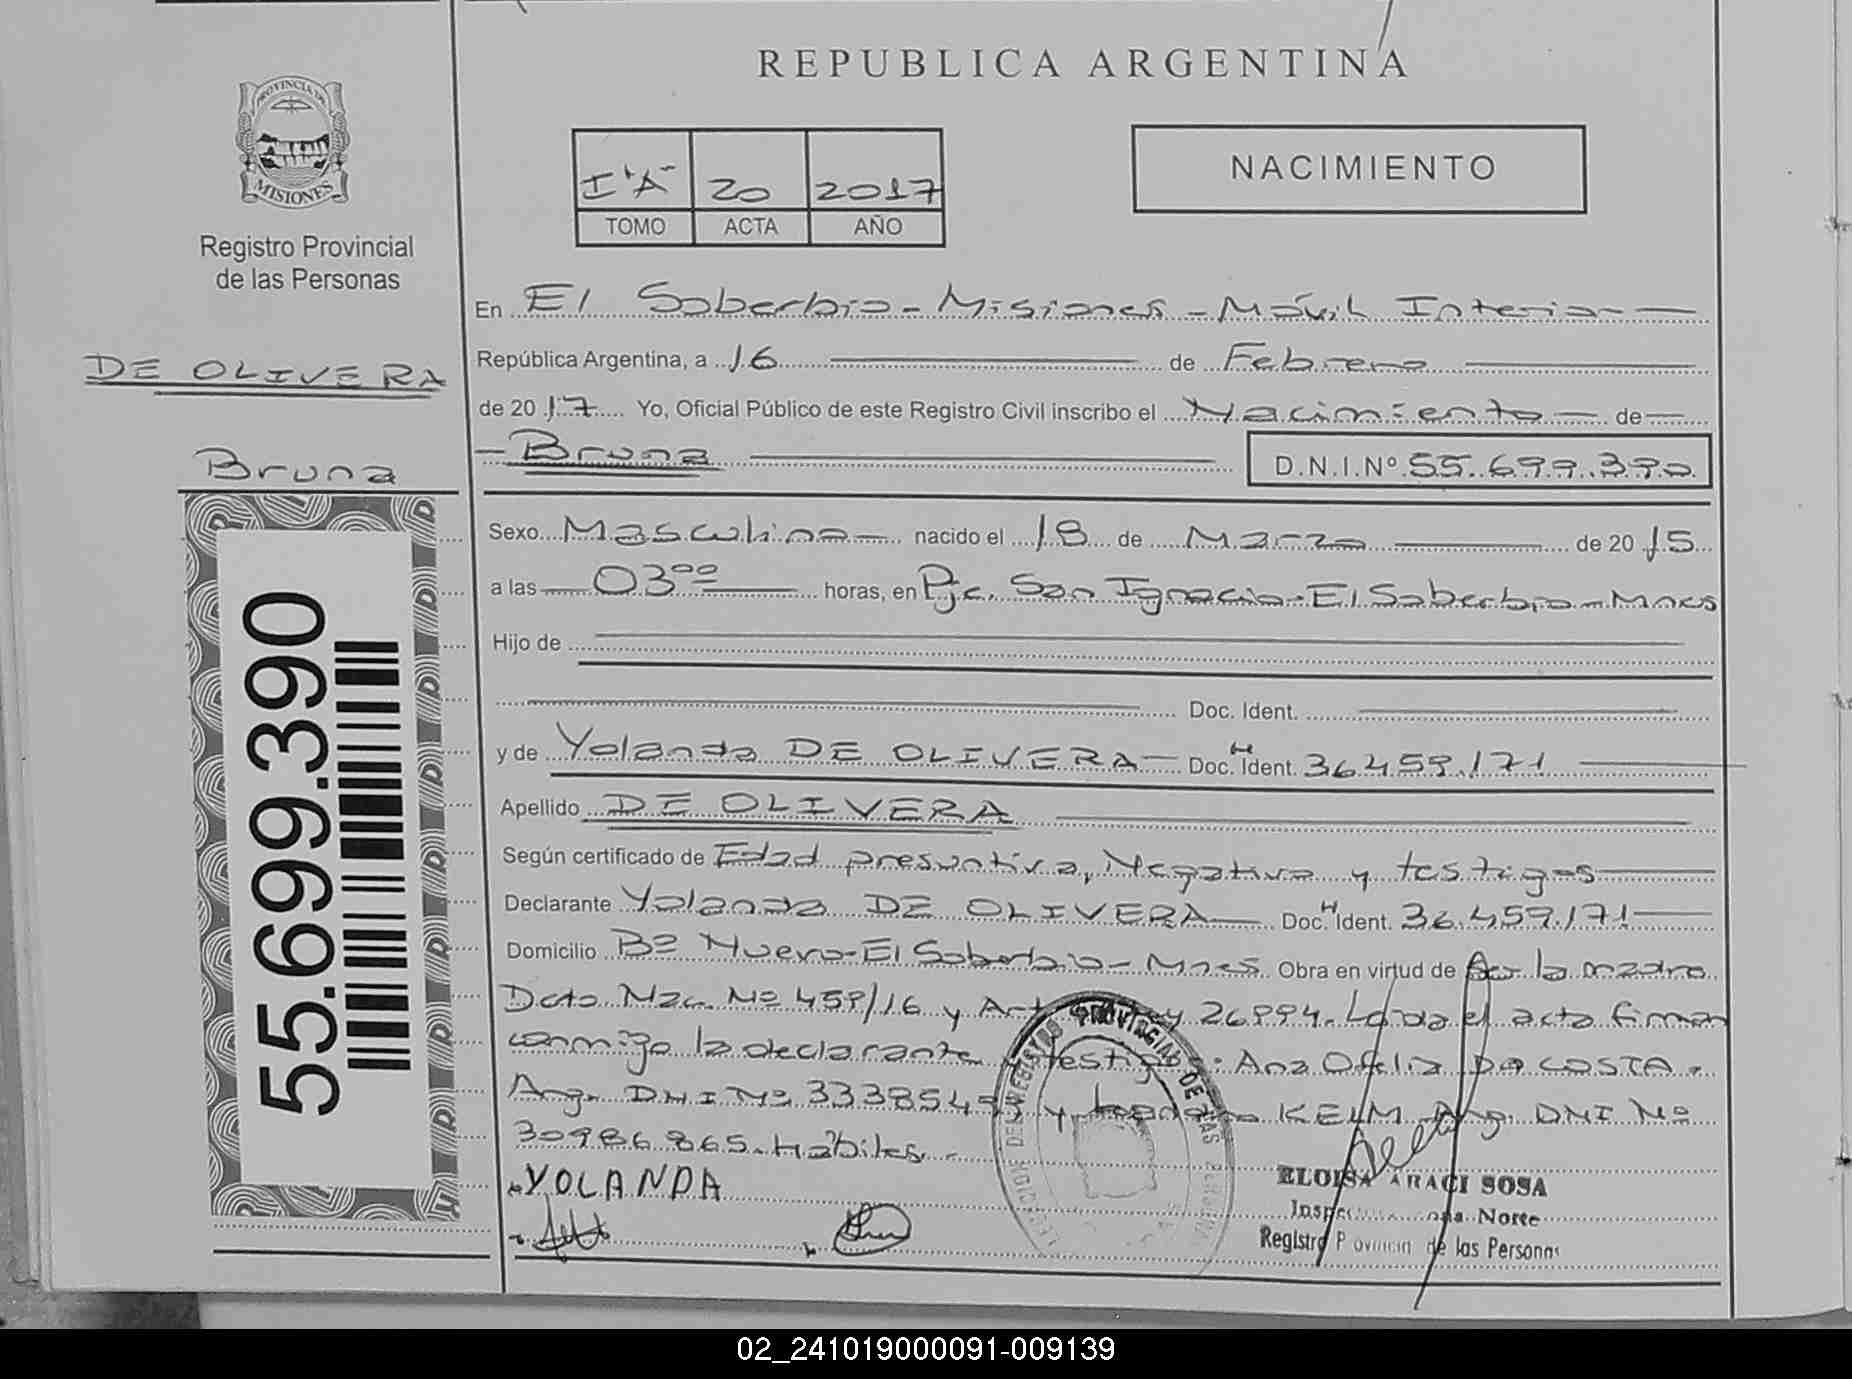 REPUBLICA ARGENTINA
PROVINCIA DE
MISIONES
Registro Provincial
de las Personas
I "A" 20 2017
TOMO ACTA AÑO
NACIMIENTO
DE OLIVERA
Bruno
55.699.390
En El Soberbio - Misiones - Móvil Interior
República Argentina, a 16 de Febrero
de 2017 Yo, Oficial Público de este Registro Civil inscribo el Nacimiento de
Bruno D.N.I.Nº 55.699.390
Sexo Masculino nacido el 18 de Marzo de 2015
a las 03ºº horas, en Pje. San Ignacio - El Soberbio - Mnes
Hijo de
Doc. Ident.
y de Yolanda DE OLIVERA Doc. Ident. 36.459.171
Apellido DE OLIVERA
Según certificado de Edad presuntiva, Negativa y testigos
Declarante Yolanda DE OLIVERA Doc. Ident. 36.459.171
Domicilio Bº Nuevo - El Soberbio - Mnes Obra en virtud de Ser la madre
Dcto Nac. Nº 459/16 y Art. Ley 26994. Leída el acta firman
conmigo la declarante testigos: Ana Ofelia DA COSTA.
Arg. DNI Nº 3338549 y KELM Arg. DNI Nº
30986.865. Hábiles.
YOLANDA
ELOISA ARACI SOSA
Norte
Registro de las Personas
02_241019000091-009139